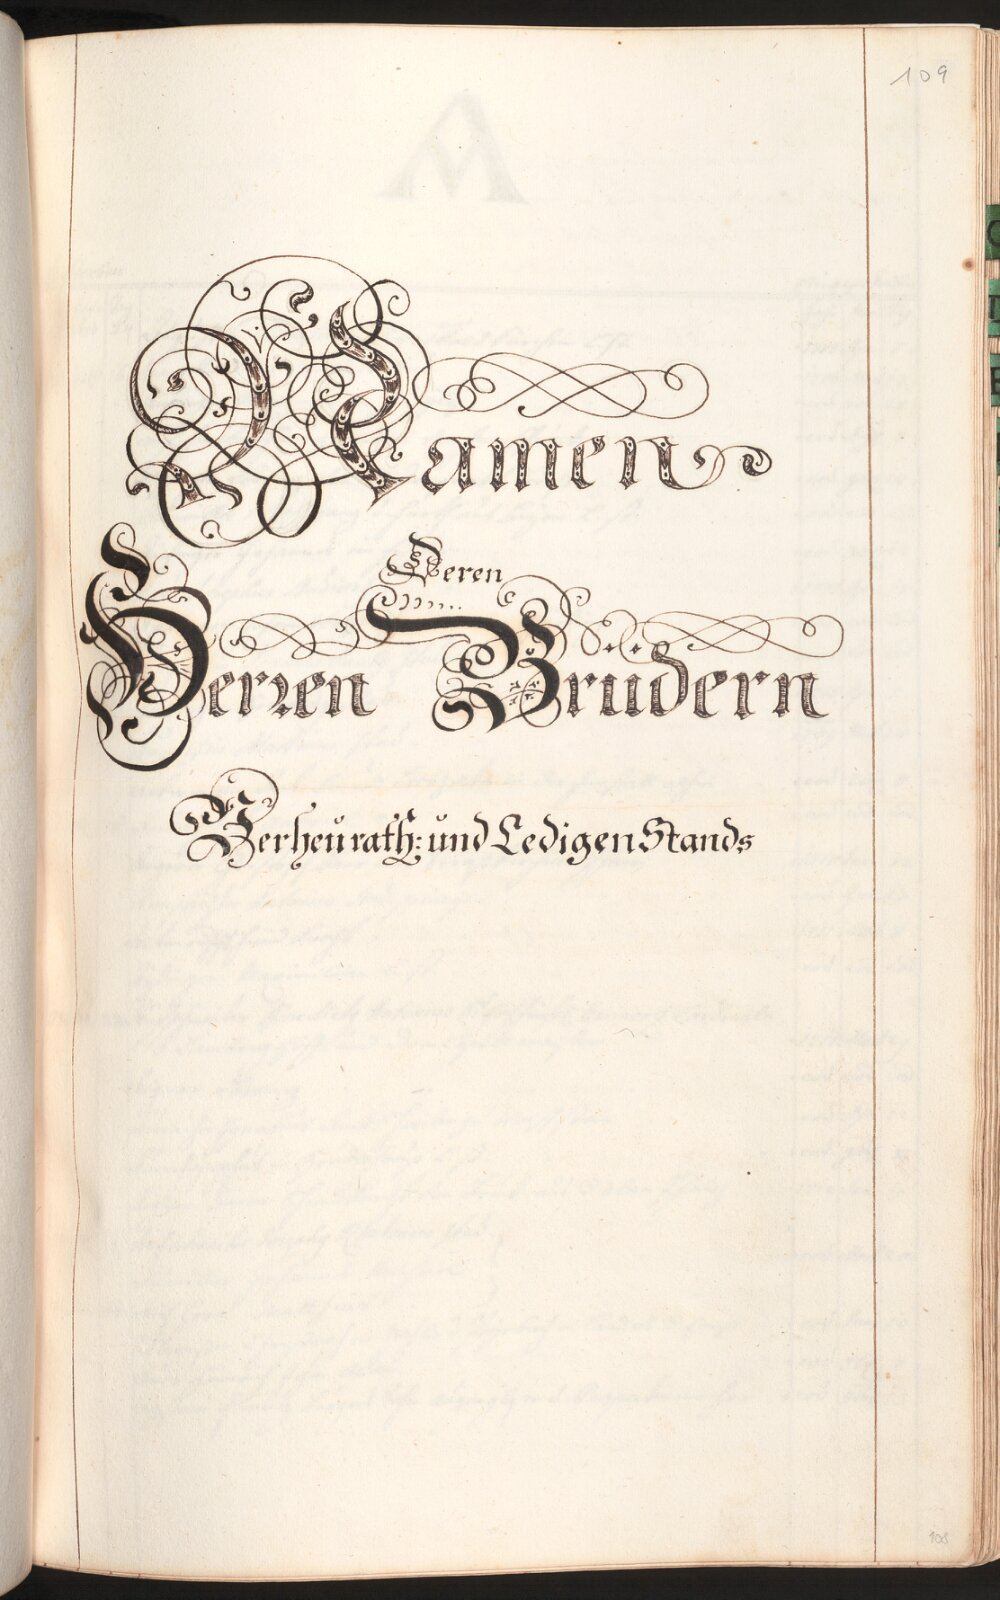 109
Namen
Deren
Herren Brüdern
Verheürath: und Ledigen Stands
108